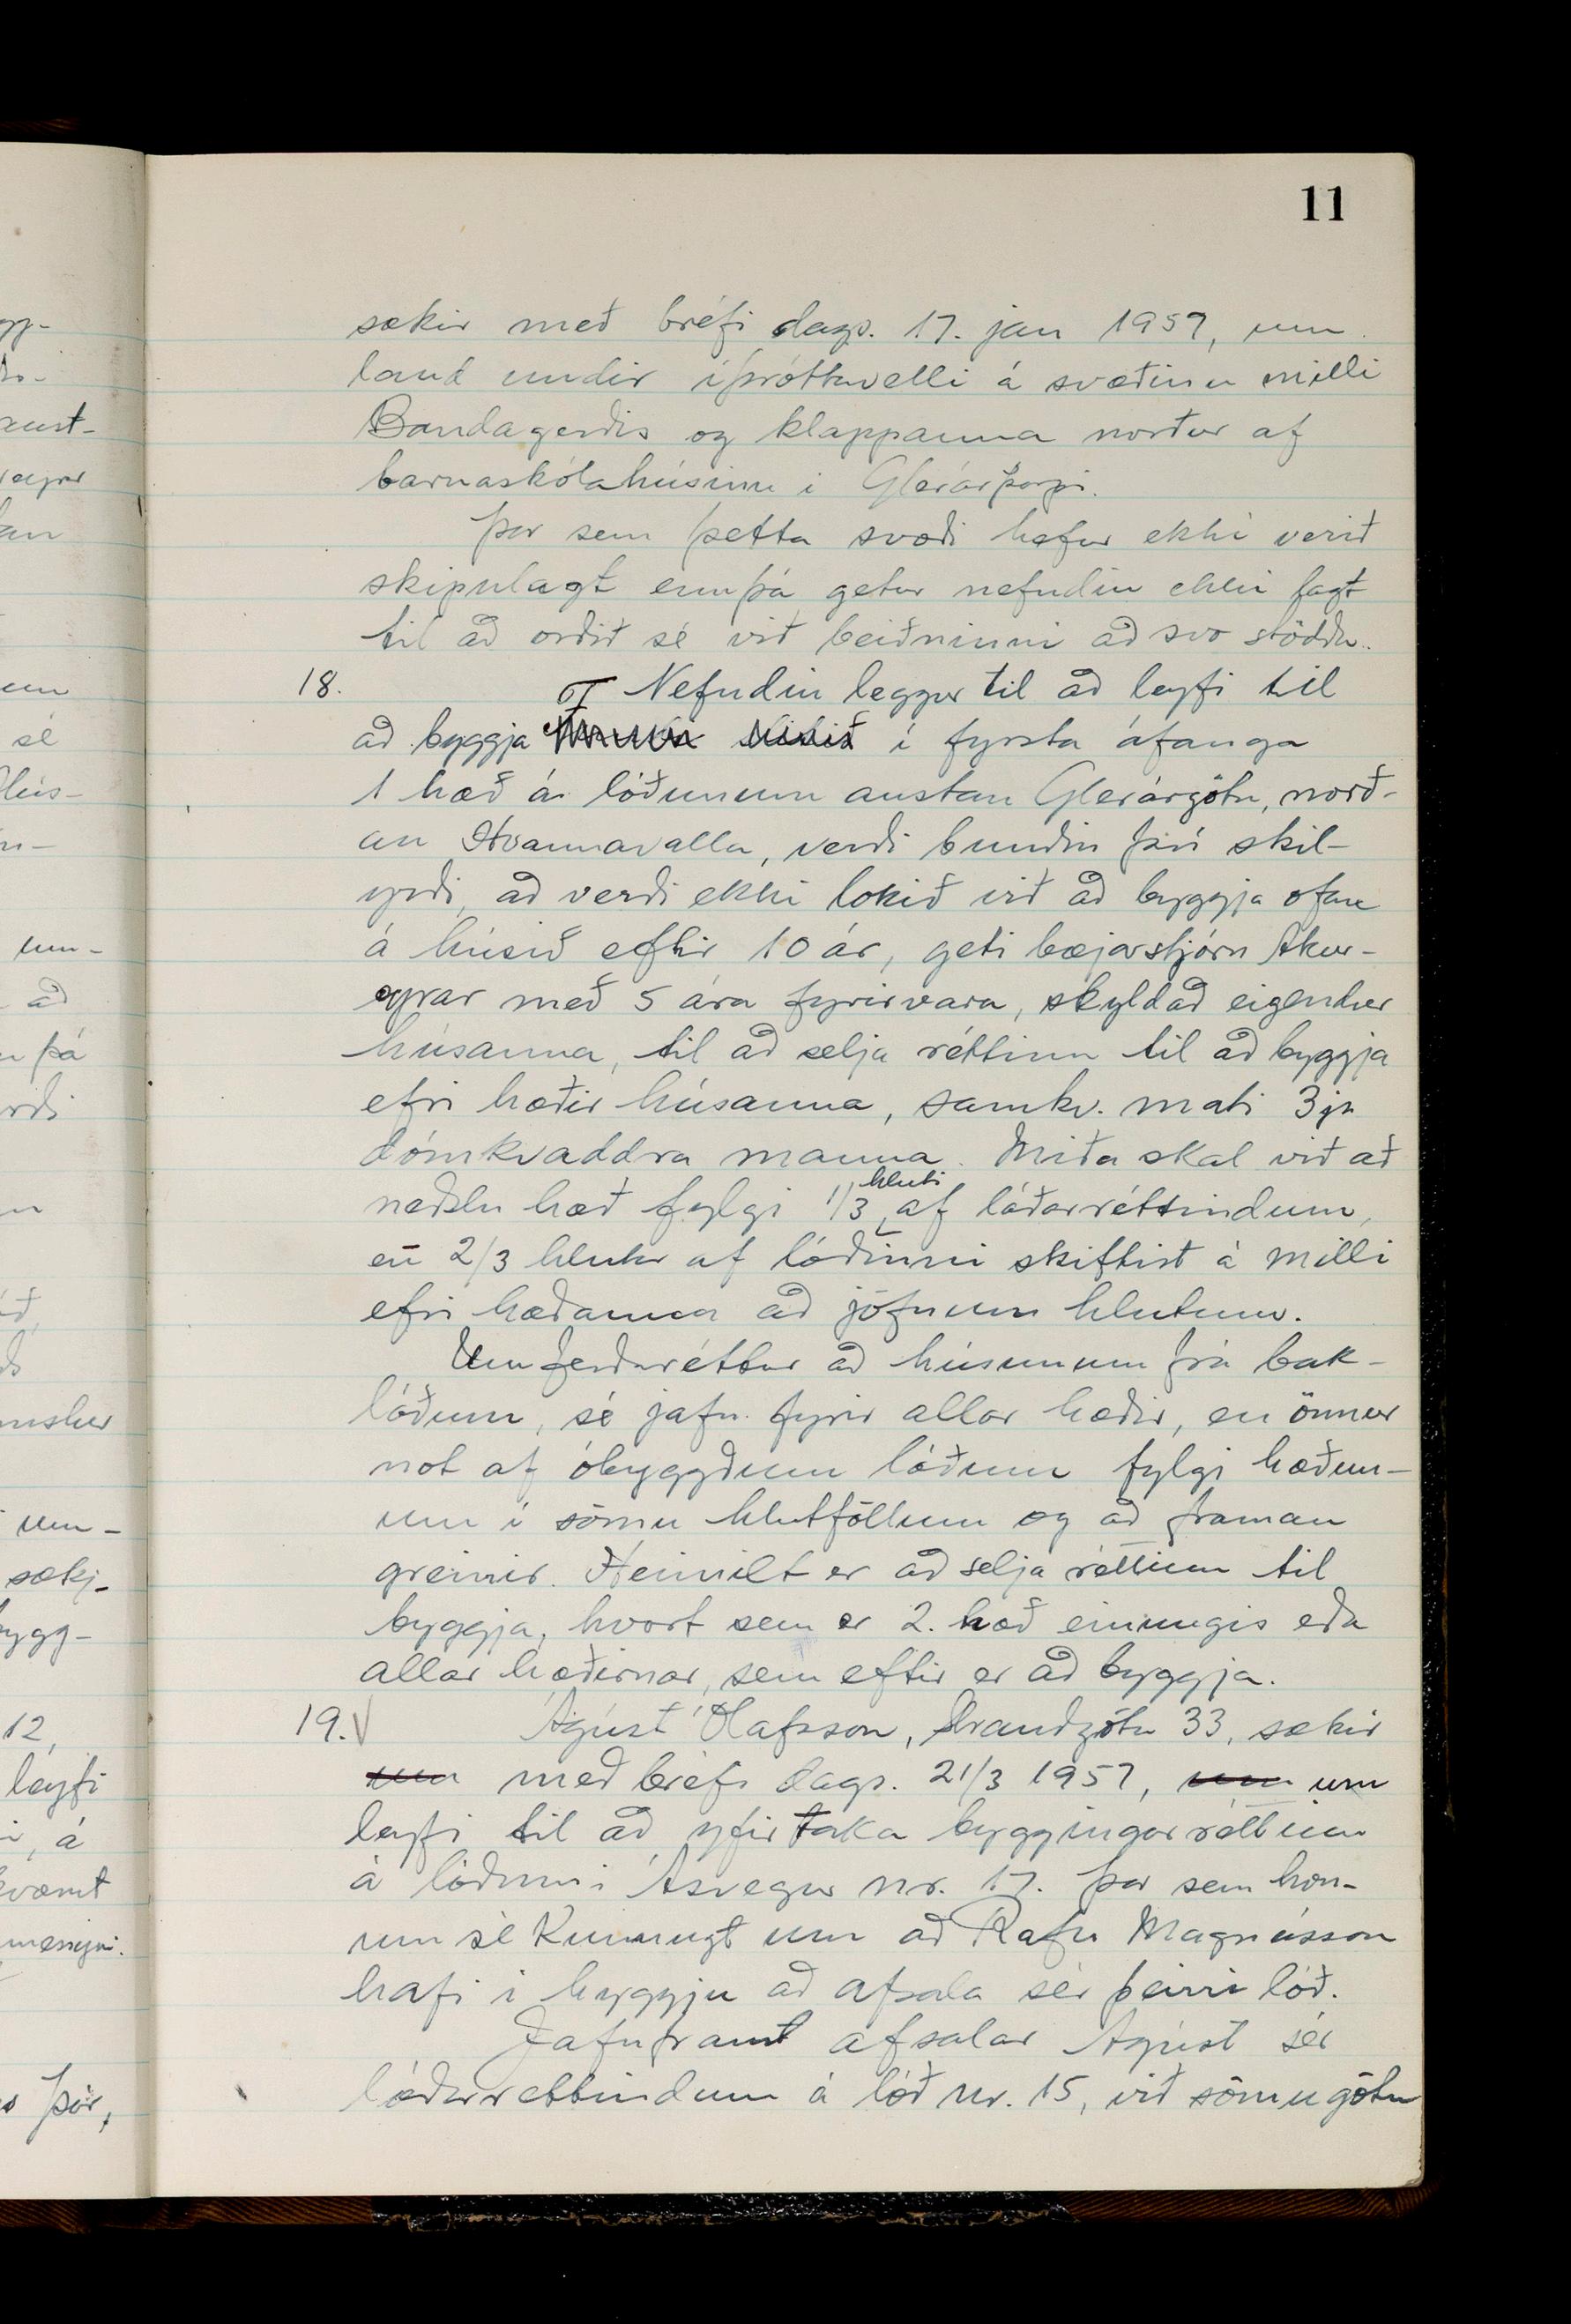 11
sækir með bréfi dags. 17. jan 1957, um
land undir íþróttavelli á svæðinu milli
Bandagerðis og klappanna norður af
barnaskólahúsinu í Glerárþorpi.
Þar sem þetta svæði hefur ekki verið
skipulagt ennþá getur nefndin ekki fagt
til að orðið sé við beiðninni að svo stöddu.
18. Nefndin leggur til að leyfi til
að byggja í fyrsta áfanga
1 hæð á lóðunum austan Glerárgötu, norð-
an Hvannavalla, verði bundin því skil-
yrði, að verði ekki lokið við að byggja ofan
á húsið eftir 10 ár, geti bæjarstjórn Akur-
eyrar með 5 ára fyrirvara, skyldað eigendur
húsanna, til að selja réttinn til að byggja
efri hæðir húsanna, samkv. mati 3ja
dómkvaddra manna. Miða skal við að
neðstu hæð fylgi 1/3 hluti af lóðarréttindum,
en 2/3 hlutar af lóðinni skiftist á milli
efri hæðanna að jöfnum hlutum.
Umferðaréttur að húsunum frá bak-
lóðum, sé jafn fyrir allar hæðir, en önnur
not af óbyggðum lóðum fylgi hæðun-
um í sömu hlutföllum og að framan
greinir. Heimilt er að selja réttinn til
byggja, hvort sem er 2. hæð einungis eða
allar hæðirnar, sem eftir er að byggja.
19. Ágúst Ólafsson, Strandgötu 33, sækir
um með bréfi dags. 21/3 1957, um um
leyfi til að yfirtaka byggingarréttinn
á lóðinni Ásvegur nr. 17. Þar sem hon-
um sé kunnugt um að Rafn Magnússon
hafi í hyggju að afsala sér þeirri lóð.
Jafnframt afsalar Ágúst sér
lóðarréttindum á lóð nr. 15, við sömu götu